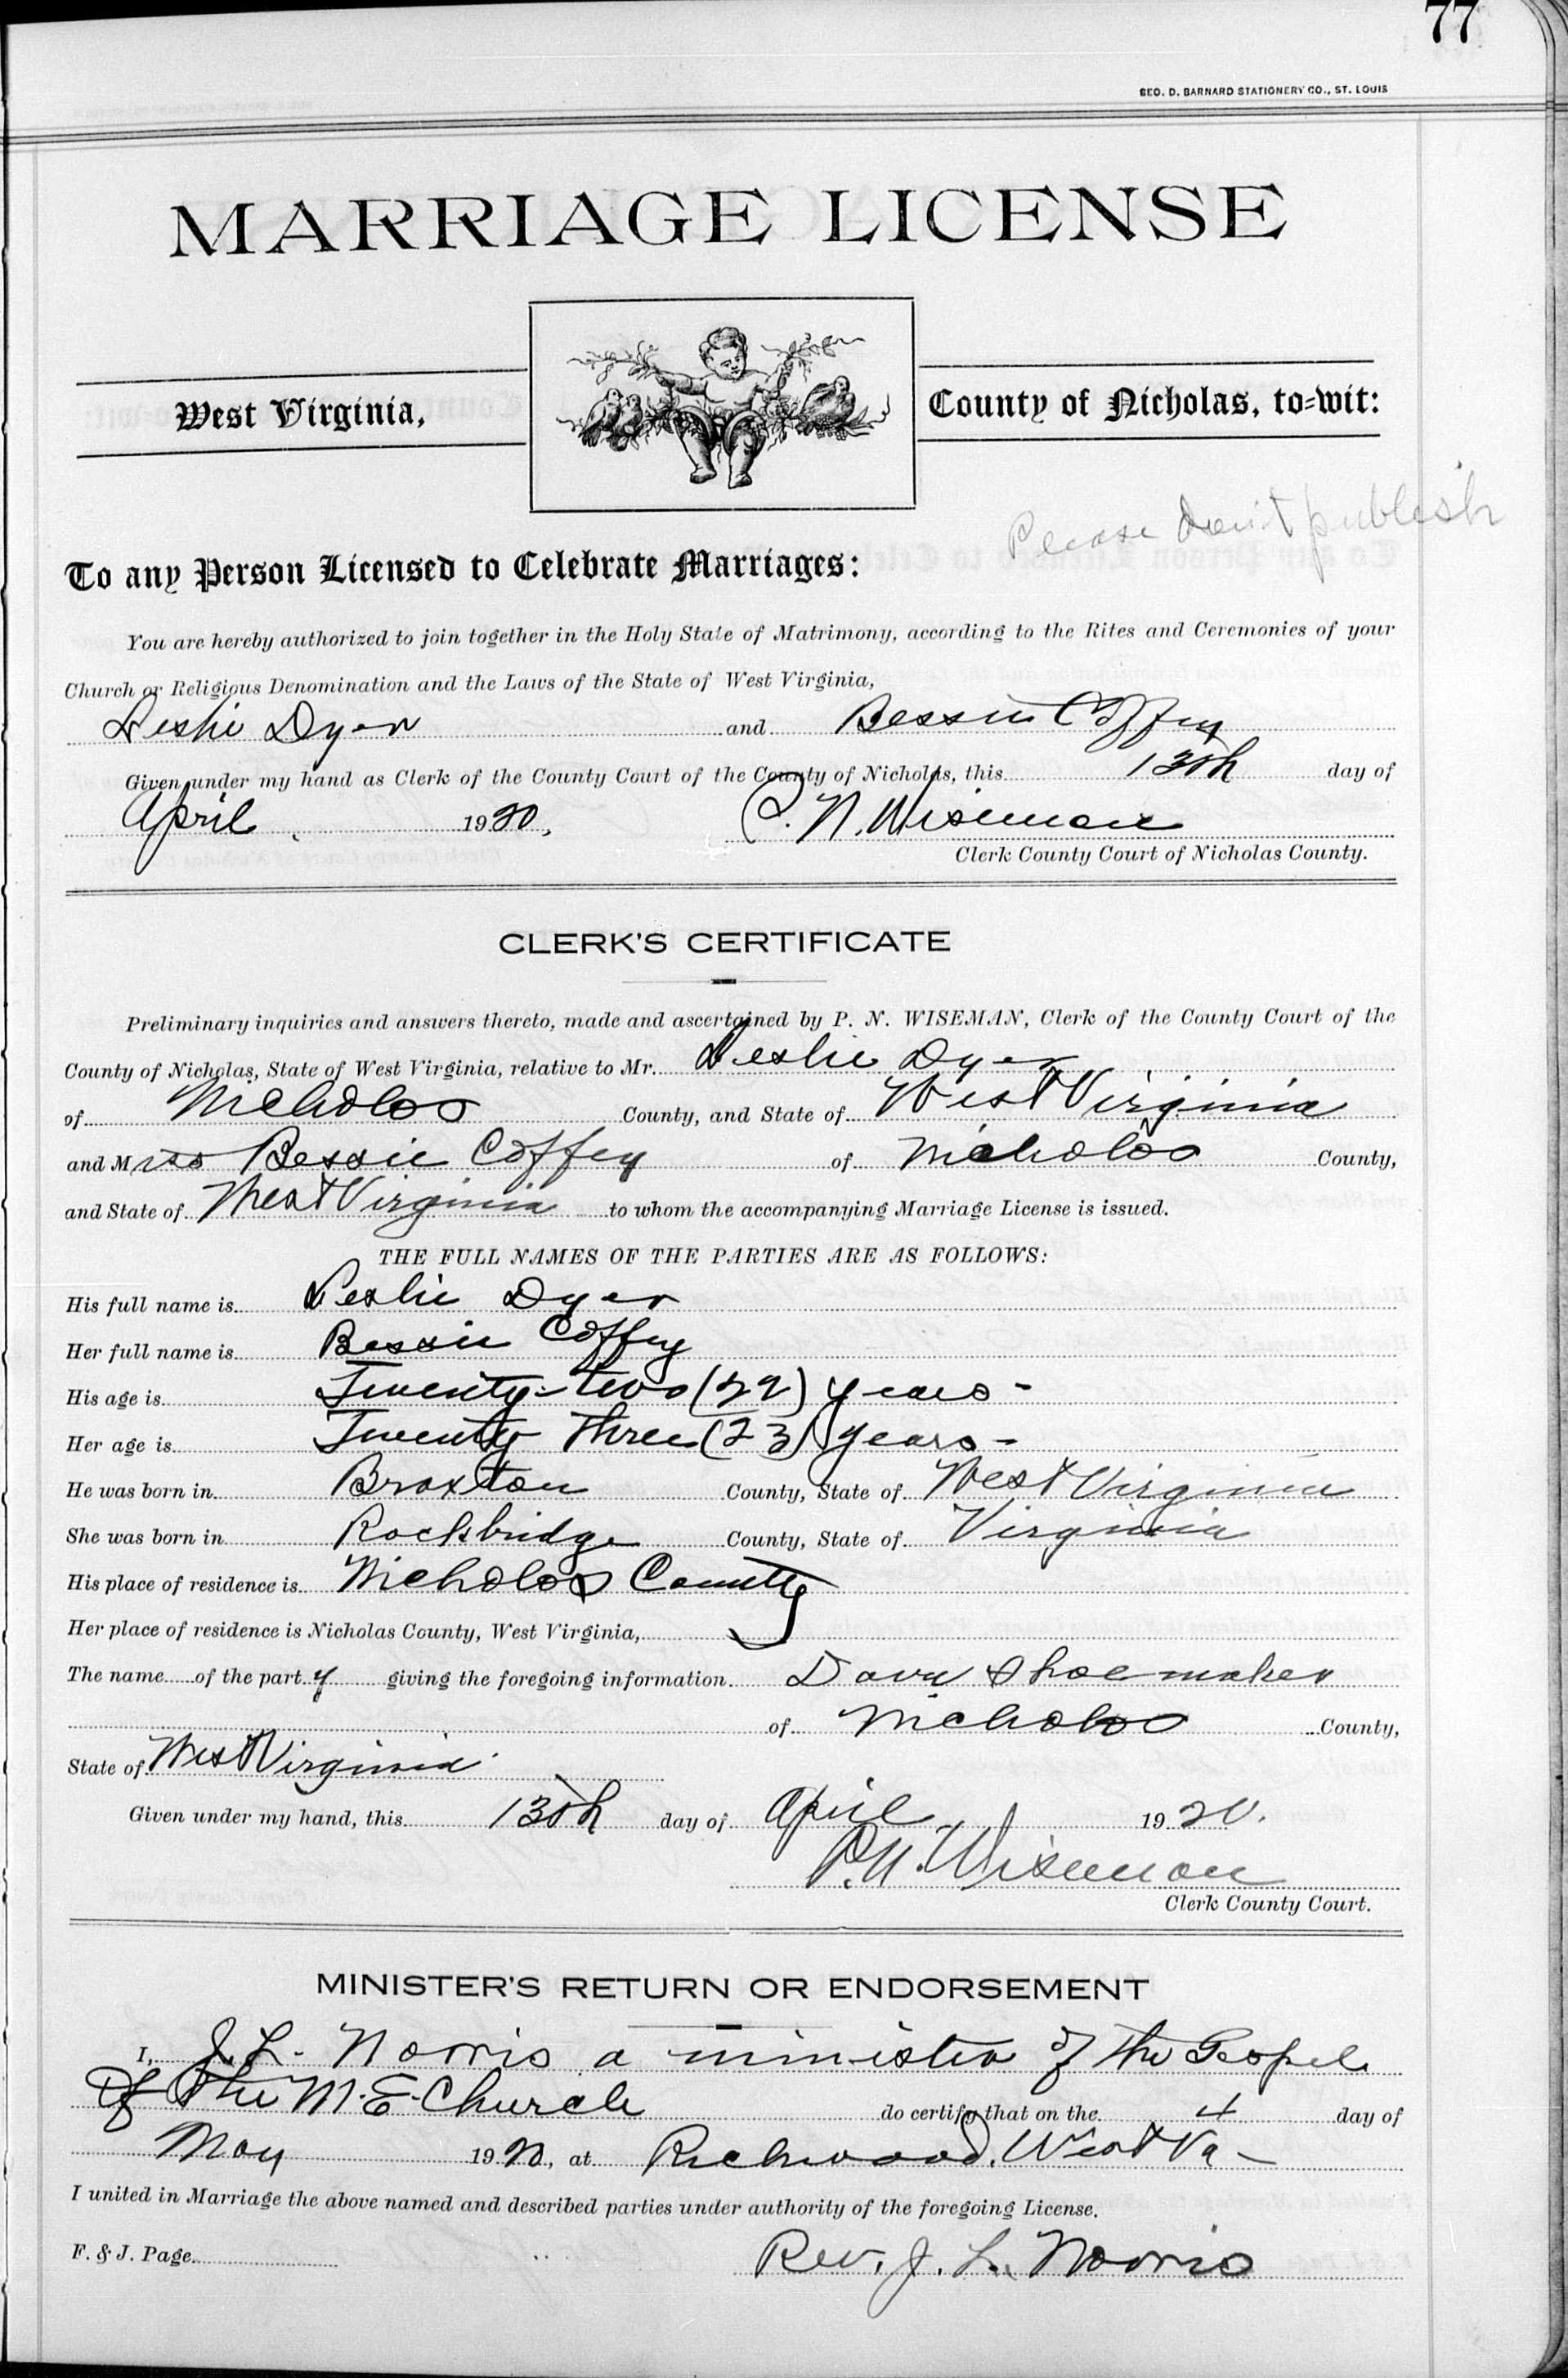 77
GEO. D. BARNARD STATIONERY CO., ST. LOUIS
MARRIAGE LICENSE
West Virginia,
County of Nicholas, to-wit:
Please don't publish
To any Person Licensed to Celebrate Marriages:
You are hereby authorized to join together in the Holy State of Matrimony, according to the Rites and Ceremonies of your
Church or Religious Denomination and the Laws of the State of West Virginia,
Leslie Dyer and Bessie Coffey
Given under my hand as Clerk of the County Court of the County of Nicholas, this 13th day of
April, 1920, P. N. Wiseman
Clerk County Court of Nicholas County.
CLERK'S CERTIFICATE
Preliminary inquiries and answers thereto, made and ascertained by P. N. WISEMAN, Clerk of the County Court of the
County of Nicholas, State of West Virginia, relative to Mr. Leslie Dyer
of Nicholas County, and State of West Virginia
and Miss Bessie Coffey of Nicholas County,
and State of West Virginia to whom the accompanying Marriage License is issued.
THE FULL NAMES OF THE PARTIES ARE AS FOLLOWS:
His full name is Leslie Dyer
Her full name is Bessie Coffey
His age is Twenty-two (22) years-
Her age is Twenty Three (23) years-
He was born in Braxton County, State of West Virginia
She was born in Rockbridge County, State of Virginia
His place of residence is Nicholas County
Her place of residence is Nicholas County, West Virginia,
The name of the party giving the foregoing information Shoemaker
of Nicholas County,
State of West Virginia
Given under my hand, this 13th day of April 1920.
P. N. Wiseman
Clerk County Court.
MINISTER'S RETURN OR ENDORSEMENT
I, J. L. Norris a minister of the Gospel
of the M. E. Church do certify that on the 4 day of
May 1920, at Richwood, West Va-
I united in Marriage the above named and described parties under authority of the foregoing License.
F. & J. Page
Rev. J. L. Norris